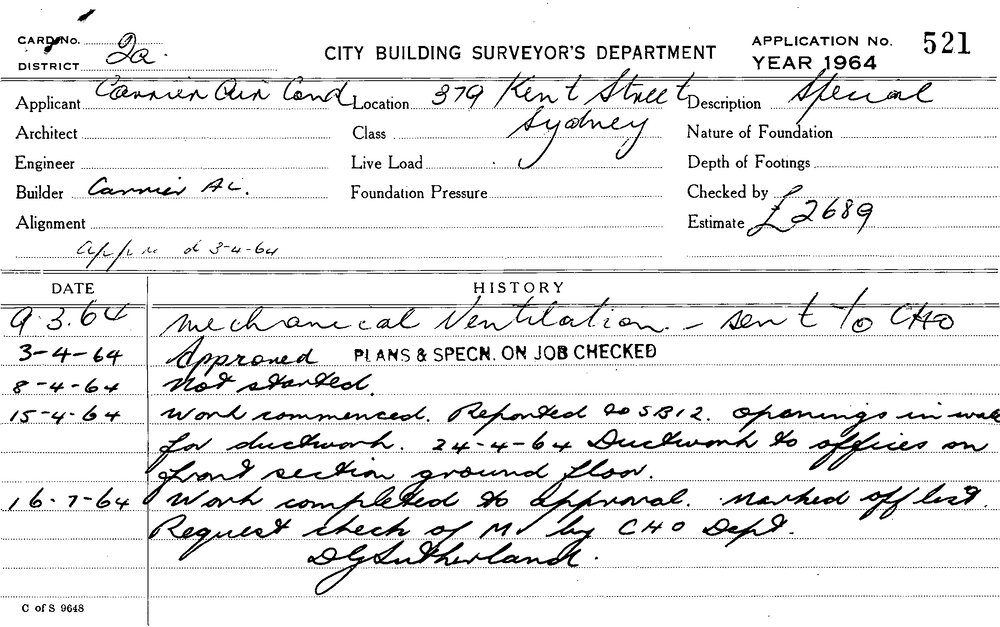 CARD No.
DISTRICT 2a.
CITY BUILDING SURVEYOR'S DEPARTMENT
APPLICATION No. 521
YEAR 1964
Applicant Carrier Air Cond Location 379 Kent Street Description Special
Architect Class Sydney Nature of Foundation
Engineer Live Load Depth of Footings
Builder Carrier AC. Foundation Pressure Checked by
Alignment Estimate £2689
3-4-64
DATE HISTORY
9.3.64 Mechanical Ventilation. - sent to CHO
3-4-64 Approved PLANS & SPECN. ON JOB CHECKED
8-4-64 Not started.
15-4-64 Work commenced. Reported to SB12. Openings in wall
for ductwork. 24-4-64 Ductwork to offices on
front section ground floor.
16-7-64 Work completed to approval. Marked off list.
Request check of MV by CHO Dept.
DGSutherland.
C of S 9648